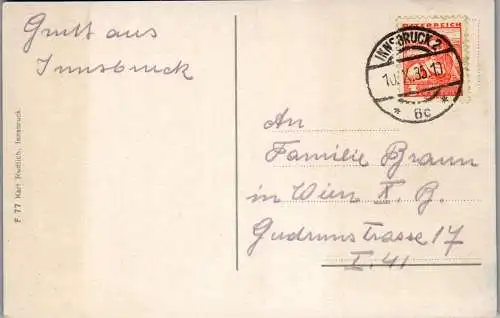 Gruß aus
Innsbruck
F 77 Karl Redlich, Innsbruck
ÖSTERREICH
INNSBRUCK 2
* 6c *
An
Familie Braun
in Wien X. B.
Gudrunstrasse 17
I. 41